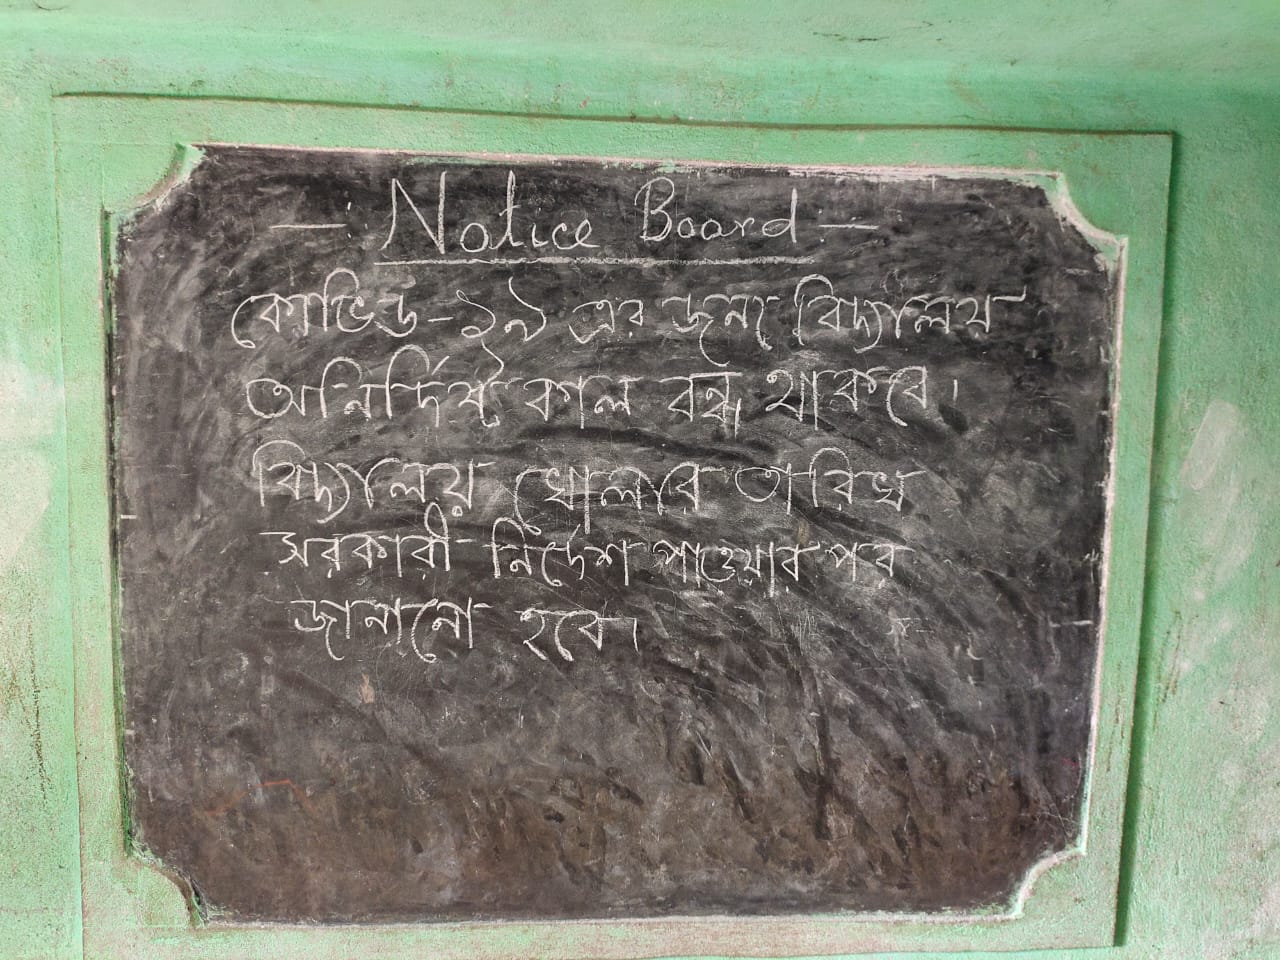 —: Notice Board :—
কোভিড-১৯ এর জন্য বিদ্যালয়
অনির্দিষ্ট কাল বন্ধ থাকবে।
বিদ্যালয় খোলার তারিখ
সরকারী নির্দেশ পাওয়ার পর
জানানো হবে।